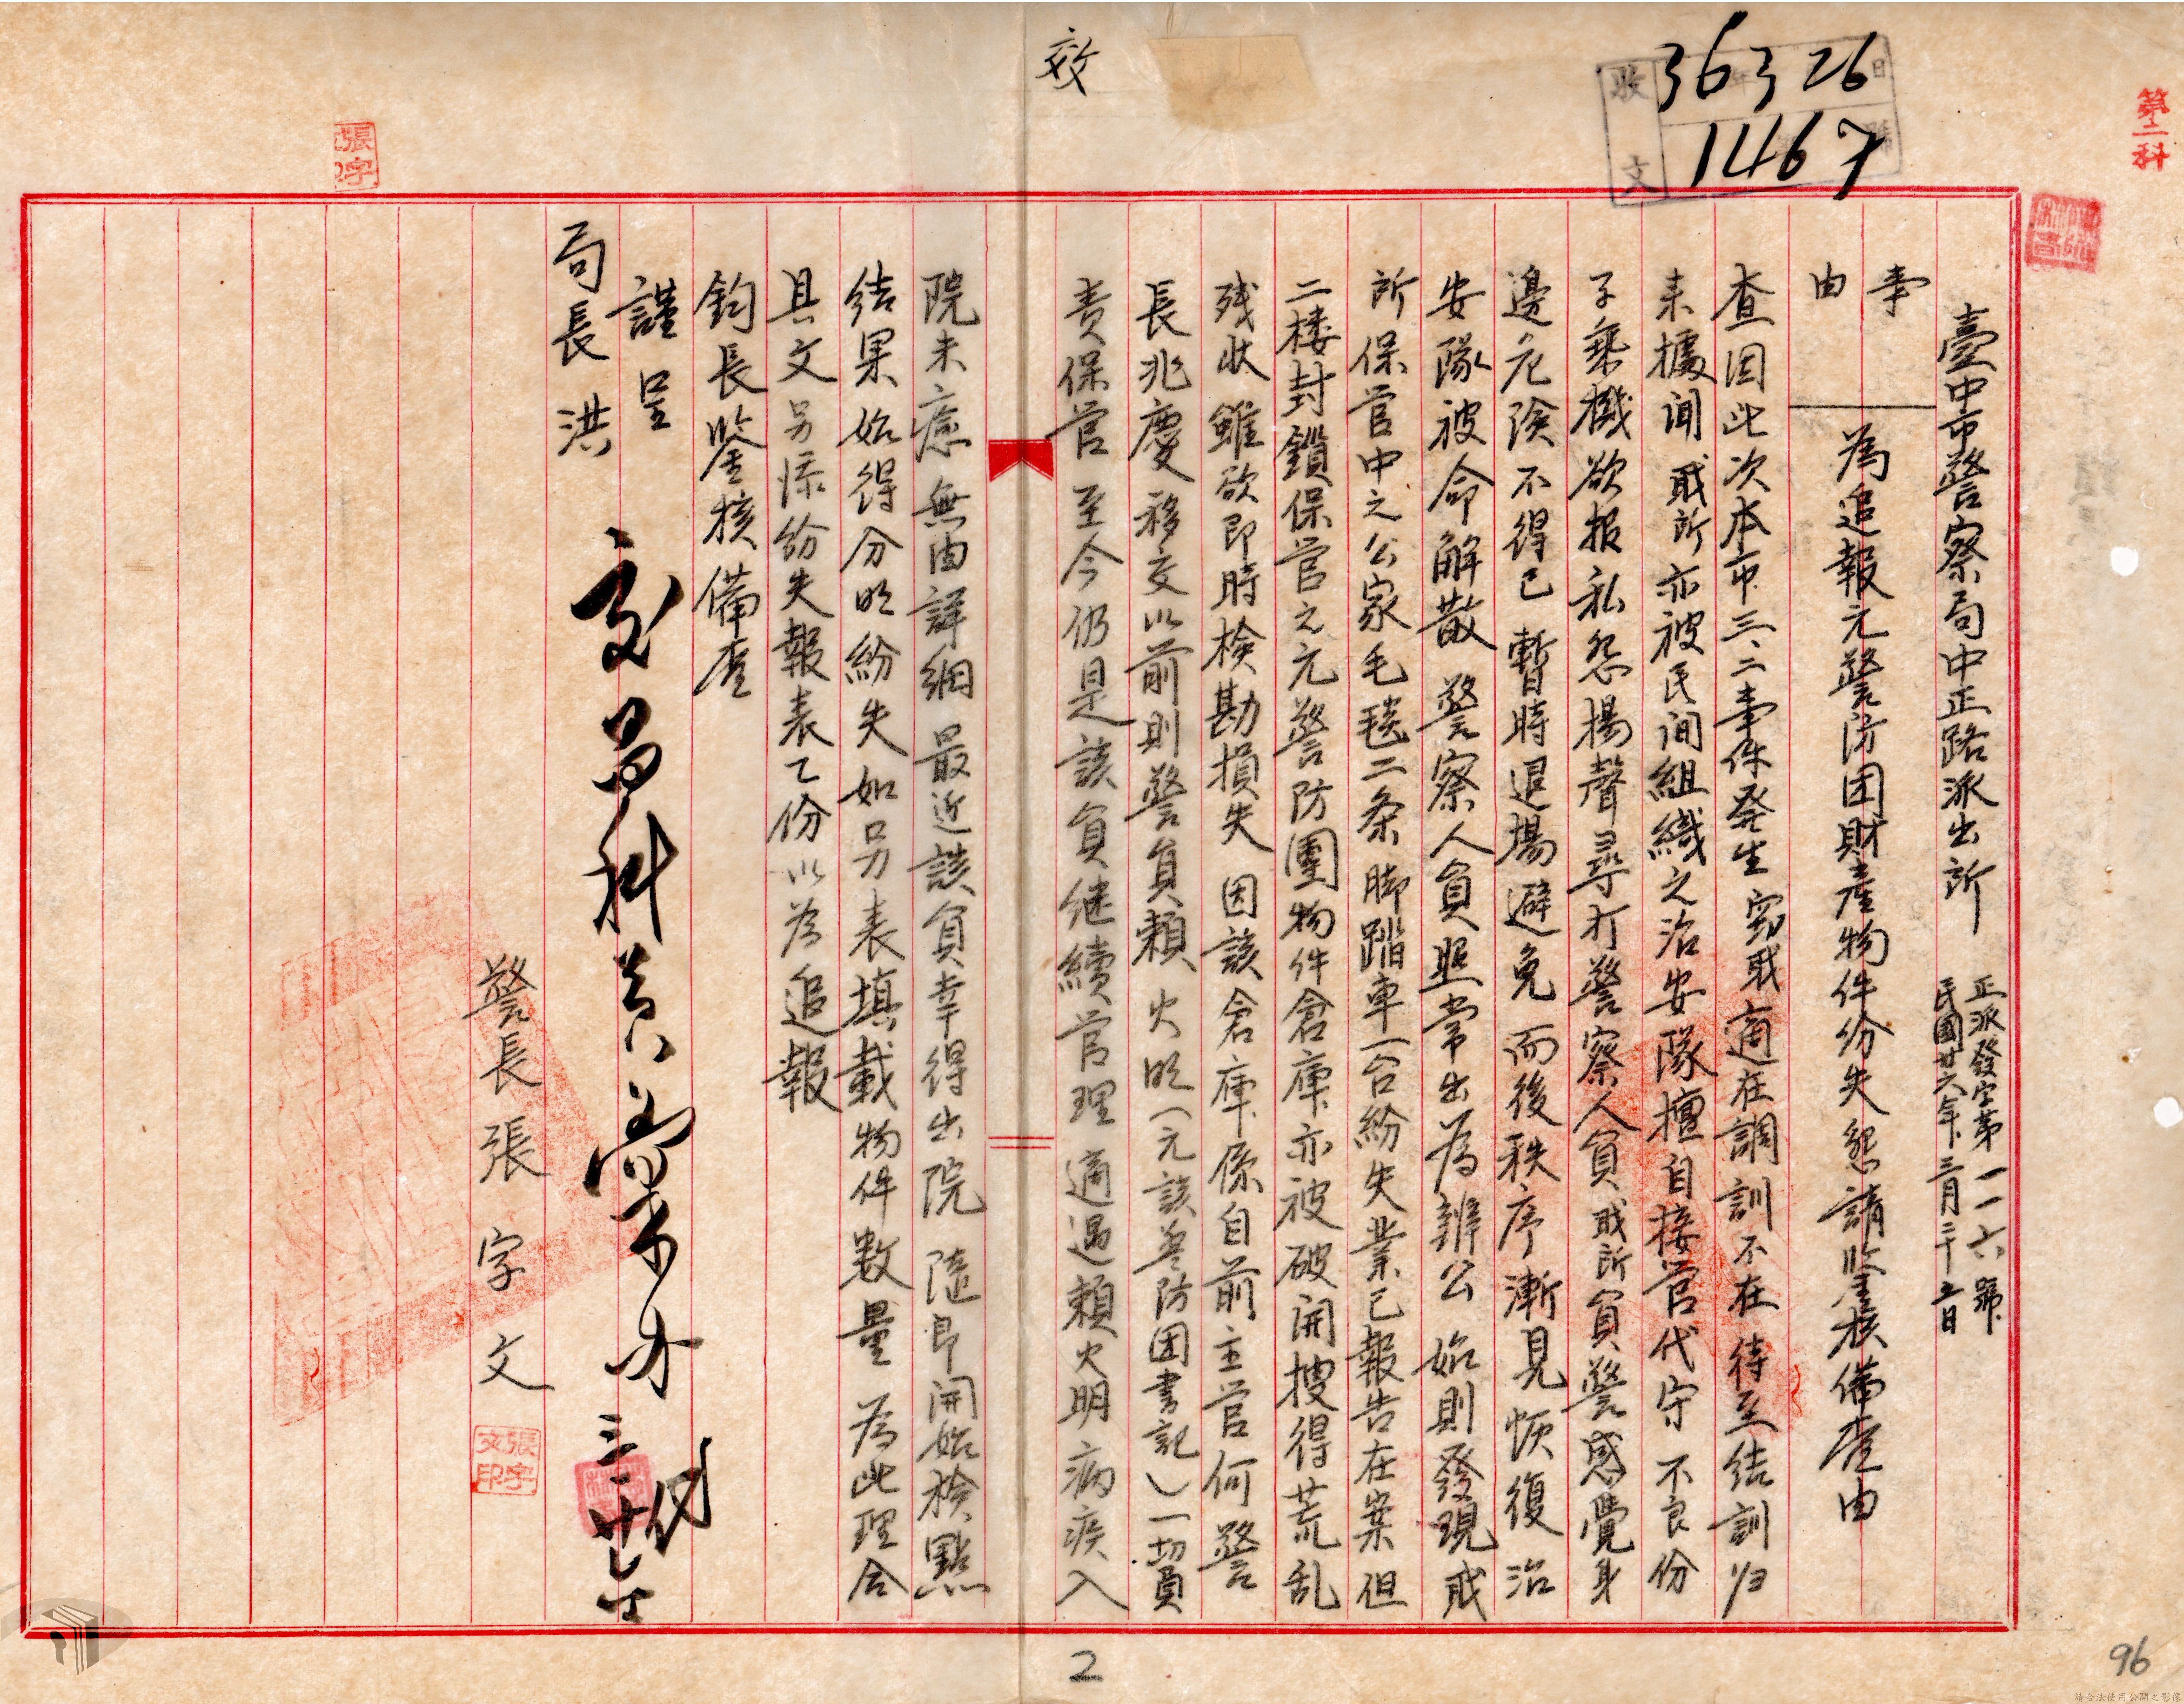 第二科
收文
36 3 26
1467
效
臺中市警察局中正路派出所
正派發字第一一六號
民國卅六年三月二十五日
事由
為追報元警防团財産物件紛失懇請鉴核備查由
查因此次本市三、二事件発生窃戝適在調訓不在待至結訓归
来據闻戝所亦被民间組織之治安隊擅自接管代守不良份
子乘機欲报私怨揚聲尋打警察人員戝所員警感覺身
邊危険不得已暫時退場避免而後秩序漸見恢復治
安隊被命解散警察人員照常出為辦公始則發現戝
所保管中之公家毛毯二条脚踏車一台紛失業已報告在案但
二楼封鎖保管之元警防團物件倉庫亦被破開搜得荒乱
残状雖欲即時検勘損失因該倉庫係自前主管何警
長兆慶移交以前則警員賴火明（元該警防团書記）一切負
责保管至今仍是該員继續管理適遇賴火明病疾入
院未癒無由詳細最近該員幸得出院隨即開始検點
结果始得分明紛失如另表填載物件數量為此理合
具文另添紛失報表乙份以為追報
鈞長鉴核備查
謹呈
局長洪
警長張字文
張字文印
張字
2
96
請合法使用公開之影像